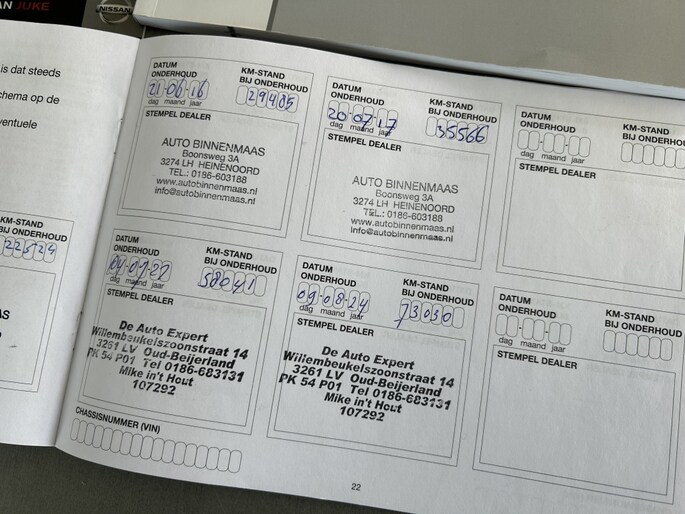 AN JUKE
NISSAN
is dat steeds
chema op de
ventuele
KM-STAND
BIJ ONDERHOUD
22524
DATUM
ONDERHOUD
21-06-16
dag maand jaar
KM-STAND
BIJ ONDERHOUD
29485
STEMPEL DEALER
AUTO BINNENMAAS
Boonsweg 3A
3274 LH HEINENOORD
TEL.: 0186-603188
www.autobinnenmaas.nl
info@autobinnenmaas.nl
DATUM
ONDERHOUD
20-07-17
dag maand jaar
KM-STAND
BIJ ONDERHOUD
35566
STEMPEL DEALER
AUTO BINNENMAAS
Boonsweg 3A
3274 LH HEINENOORD
TEL.: 0186-603188
www.autobinnenmaas.nl
info@autobinnenmaas.nl
DATUM
ONDERHOUD
dag maand jaar
KM-STAND
BIJ ONDERHOUD
STEMPEL DEALER
DATUM
ONDERHOUD
dag maand jaar
KM-STAND
BIJ ONDERHOUD
58041
STEMPEL DEALER
De Auto Expert
Willembeukelszoonstraat 14
3261 LV Oud-Beijerland
PK 54 P01 Tel 0186-683131
Mike in't Hout
107292
DATUM
ONDERHOUD
09-08-24
dag maand jaar
KM-STAND
BIJ ONDERHOUD
73030
STEMPEL DEALER
De Auto Expert
Willembeukelszoonstraat 14
3261 LV Oud-Beijerland
PK 54 P01 Tel 0186-683131
Mike in't Hout
107292
DATUM
ONDERHOUD
dag maand jaar
KM-STAND
BIJ ONDERHOUD
STEMPEL DEALER
CHASSISNUMMER (VIN)
22